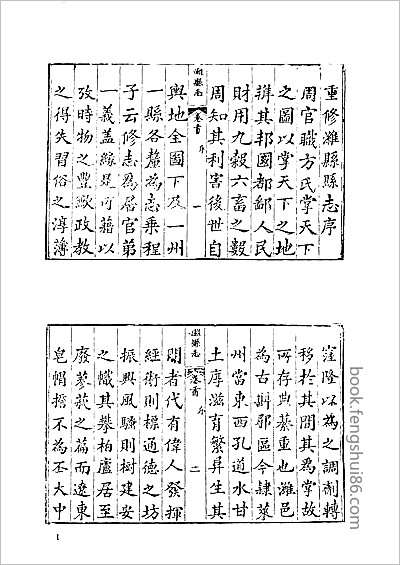 重修濰縣縣志序
周官職方氏掌天下
之圖以掌天下之地
辨其邦國都鄙人民
財用九穀六畜之數
周知其利害後世自
濰縣志
卷首 序
一
輿地全圖下及一州
一縣各釐為志乘程
子云修志為居官第
一義蓋縣是可藉以
攷時物之豐歉政教
之得失習俗之淳薄
窪隆以為之調劑轉
移於其間其為掌故
所存典綦重也濰邑
為古斟鄩區今隸萊
州當東西孔道水甘
土厚滋育繁昇生其
濰縣志
卷首 序
二
閒者代有偉人發揮
經術則標通德之坊
振興風騷則樹建安
之幟其攀柏廬居至
廢蓼莪之篇而遼東
皂帽擔不為丕大中
1
book.fengshui86.com